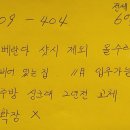 09 - 404
베란다 샷시 제외 올수리
비어 있는 집. 11月 입주가능
주방 싱크대 2년전 교체
확장 X